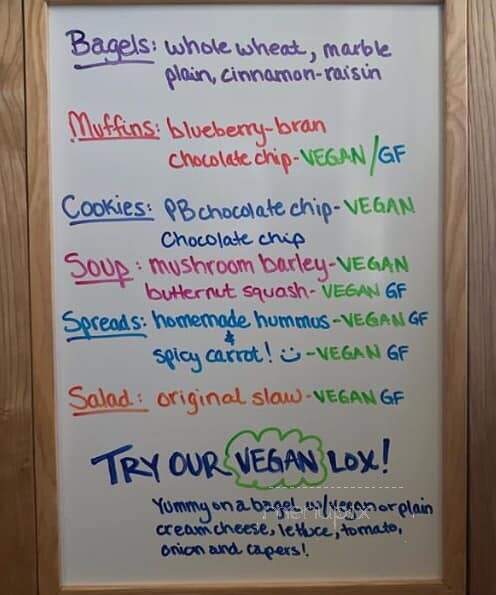 Bagels: whole wheat, marble
plain, cinnamon-raisin
Muffins: blueberry-bran
chocolate chip-VEGAN/GF
Cookies: PB chocolate chip-VEGAN
Chocolate chip
Soup: mushroom barley-VEGAN
butternut squash-VEGAN GF
Spreads: homemade hummus-VEGAN GF
&
spicy carrot! -VEGAN GF
Salad: original slaw-VEGAN GF
TRY OUR VEGAN LOX!
Yummy on a bagel w/vegan or plain
cream cheese, lettuce, tomato,
onion and capers!